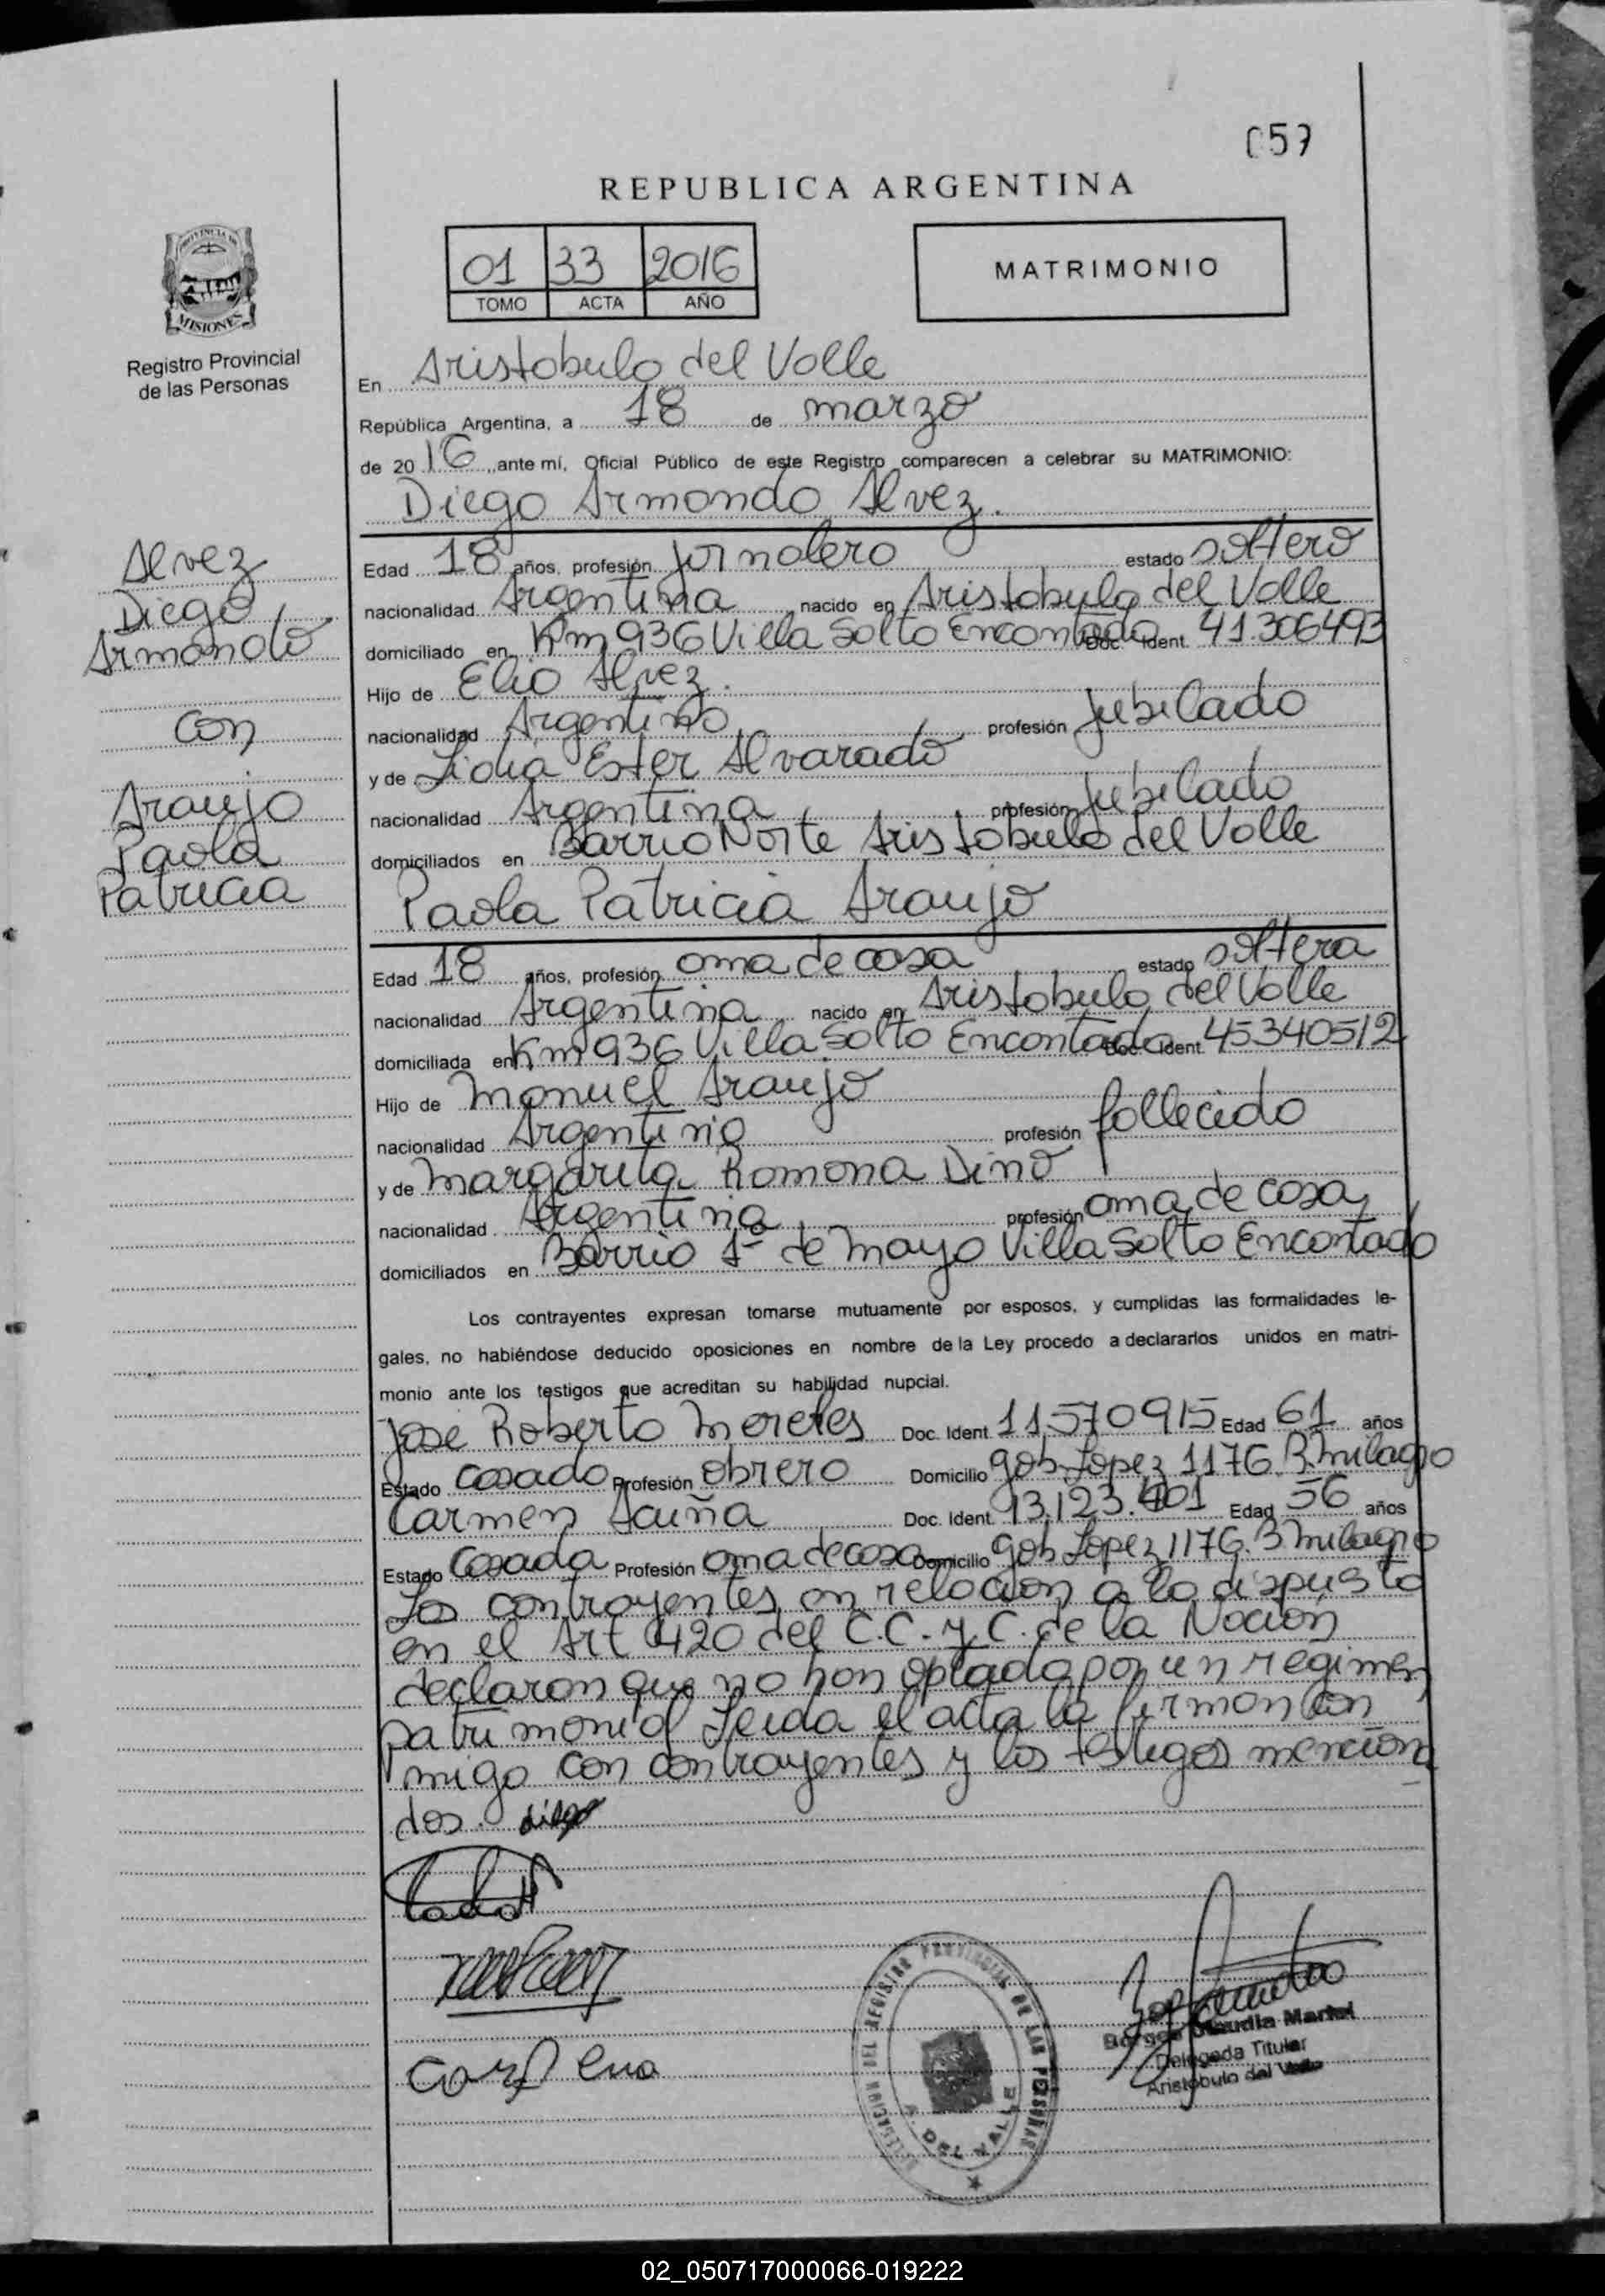 057
REPUBLICA ARGENTINA
01 33 2016
TOMO ACTA AÑO
MATRIMONIO
PROVINCIA DE
MISIONES
Registro Provincial
de las Personas
En Aristobulo del Valle
República Argentina, a 18 de marzo
de 20 16 ,,ante mí, Oficial Público de este Registro comparecen a celebrar su MATRIMONIO:
Diego Armando Alvez.
Alvez
Diego
Armando
con
Araujo
Paola
Patricia
Edad 18 años, profesión Jornalero estado soltero
nacionalidad Argentina nacido en Aristobulo del Valle
domiciliado en Km 936 Villa Salto Encantado Doc. Ident. 41.306493
Hijo de Elio Alvez.
nacionalidad Argentino profesión Jubilado
y de Lidia Ester Alvarado
nacionalidad Argentina profesión Jubilado
domiciliados en Barrio Norte Aristobulo del Valle
Paola Patricia Araujo
Edad 18 años, profesión ama de casa estado soltera
nacionalidad Argentina nacido en Aristobulo del Valle
domiciliada en Km 936 Villa Salto Encantado Doc. Ident. 45340512
Hijo de Manuel Araujo
nacionalidad Argentina profesión fallecido
y de Margarita Ramona Dino
nacionalidad Argentina profesión ama de casa
domiciliados en Barrio 1º de Mayo Villa Salto Encantado
Los contrayentes expresan tomarse mutuamente por esposos, y cumplidas las formalidades le-
gales, no habiéndose deducido oposiciones en nombre de la Ley procedo a declararlos unidos en matri-
monio ante los testigos que acreditan su habilidad nupcial.
Jose Roberto Mereles Doc. Ident. 11570915 Edad 61 años
Estado Casado Profesión Obrero Domicilio gob Lopez 1176. B. milagro
Carmen Acuña Doc. Ident. 13.123.401 Edad 56 años
Estado Casada Profesión ama de casa Domicilio gob Lopez 1176. B milagro
Los contrayentes en relacion a lo dispuesto
en el Art 420 del C.C. y C. de la Nacion
declaron que no han optado por un regimen
patrimonial Leida el acta la firman con
migo con contrayentes y los testigos menciona
dos. diego
DELEGACION DEL REGISTRO PROVINCIAL DE LAS PERSONAS
A. DEL VALLE
Borges Claudia Mariel
Delegada Titular
Aristobulo del Valle
02_050717000066-019222